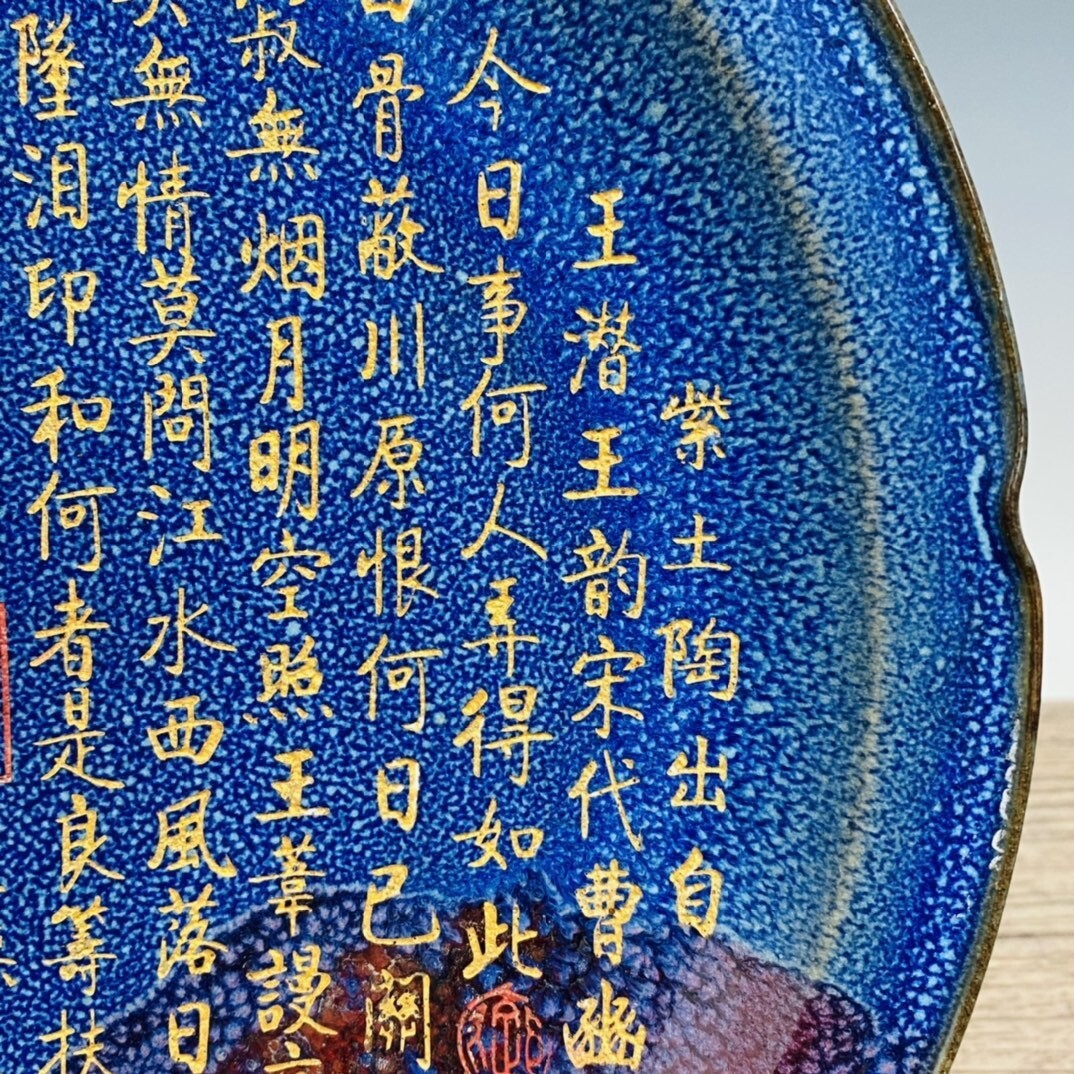 紫土陶出自
王潜王韵宋代曹豳
今日事何人弄得如此
骨蔽川原恨何日已關
叔無烟月明空照王葦謾
無情莫問江水西風落日
墜泪印和何者是良籌扶